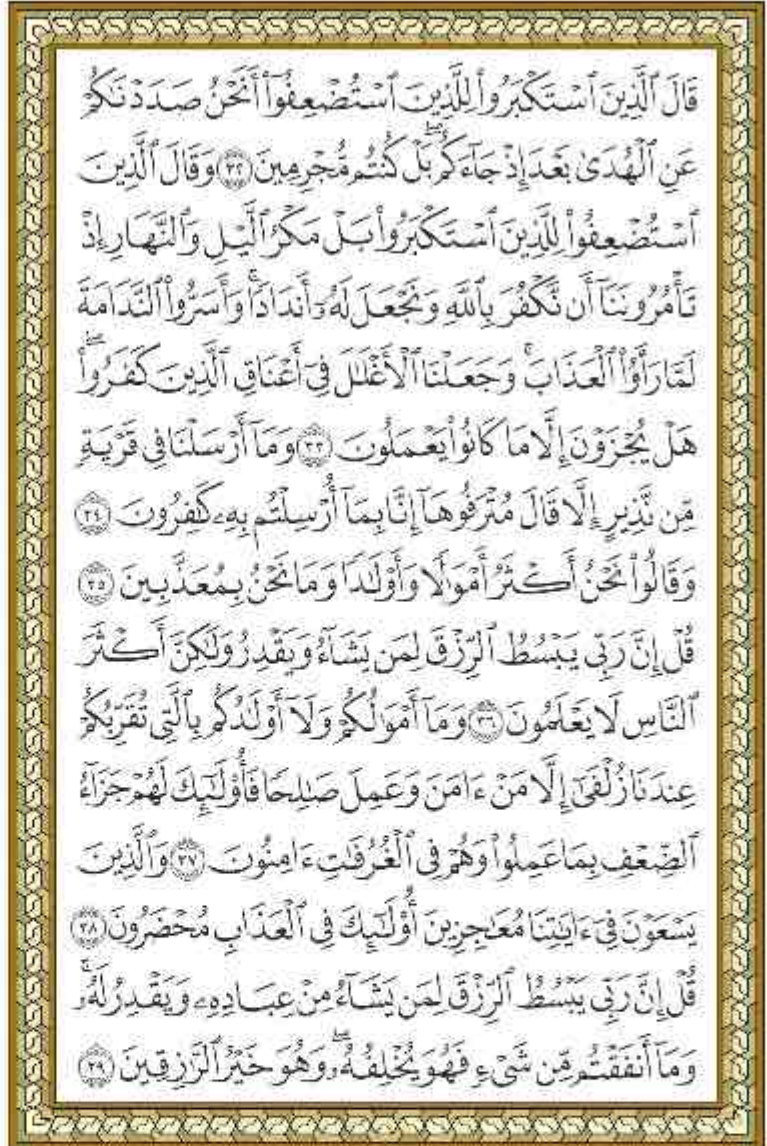 قَالَ ٱلَّذِينَ ٱسْتَكْبَرُوا۟ لِلَّذِينَ ٱسْتُضْعِفُوٓا۟ أَنَحْنُ صَدَدْنَٰكُمْ
عَنِ ٱلْهُدَىٰ بَعْدَ إِذْ جَآءَكُم ۖ بَلْ كُنتُم مُّجْرِمِينَ ﴿٣٢﴾ وَقَالَ ٱلَّذِينَ
ٱسْتُضْعِفُوا۟ لِلَّذِينَ ٱسْتَكْبَرُوا۟ بَلْ مَكْرُ ٱلَّيْلِ وَٱلنَّهَارِ إِذْ
تَأْمُرُونَنَآ أَن نَّكْفُرَ بِٱللَّهِ وَنَجْعَلَ لَهُۥٓ أَندَادًا ۚ وَأَسَرُّوا۟ ٱلنَّدَامَةَ
لَمَّا رَأَوُا۟ ٱلْعَذَابَ ۚ وَجَعَلْنَا ٱلْأَغْلَٰلَ فِىٓ أَعْنَاقِ ٱلَّذِينَ كَفَرُوا۟ ۖ
هَلْ يُجْزَوْنَ إِلَّا مَا كَانُوا۟ يَعْمَلُونَ ﴿٣٣﴾ وَمَآ أَرْسَلْنَا فِى قَرْيَةٍ
مِّن نَّذِيرٍ إِلَّا قَالَ مُتْرَفُوهَآ إِنَّا بِمَآ أُرْسِلْتُم بِهِۦ كَٰفِرُونَ ﴿٣٤﴾
وَقَالُوا۟ نَحْنُ أَكْثَرُ أَمْوَٰلًا وَأَوْلَٰدًا وَمَا نَحْنُ بِمُعَذَّبِينَ ﴿٣٥﴾
قُلْ إِنَّ رَبِّى يَبْسُطُ ٱلرِّزْقَ لِمَن يَشَآءُ وَيَقْدِرُ وَلَٰكِنَّ أَكْثَرَ
ٱلنَّاسِ لَا يَعْلَمُونَ ﴿٣٦﴾ وَمَآ أَمْوَٰلُكُمْ وَلَآ أَوْلَٰدُكُم بِٱلَّتِى تُقَرِّبُكُمْ
عِندَنَا زُلْفَىٰٓ إِلَّا مَنْ ءَامَنَ وَعَمِلَ صَٰلِحًا فَأُو۟لَٰٓئِكَ لَهُمْ جَزَآءُ
ٱلضِّعْفِ بِمَا عَمِلُوا۟ وَهُمْ فِى ٱلْغُرُفَٰتِ ءَامِنُونَ ﴿٣٧﴾ وَٱلَّذِينَ
يَسْعَوْنَ فِىٓ ءَايَٰتِنَا مُعَٰجِزِينَ أُو۟لَٰٓئِكَ فِى ٱلْعَذَابِ مُحْضَرُونَ ﴿٣٨﴾
قُلْ إِنَّ رَبِّى يَبْسُطُ ٱلرِّزْقَ لِمَن يَشَآءُ مِنْ عِبَادِهِۦ وَيَقْدِرُ لَهُۥ ۚ
وَمَآ أَنفَقْتُم مِّن شَىْءٍ فَهُوَ يُخْلِفُهُۥ ۖ وَهُوَ خَيْرُ ٱلرَّٰزِقِينَ ﴿٣٩﴾